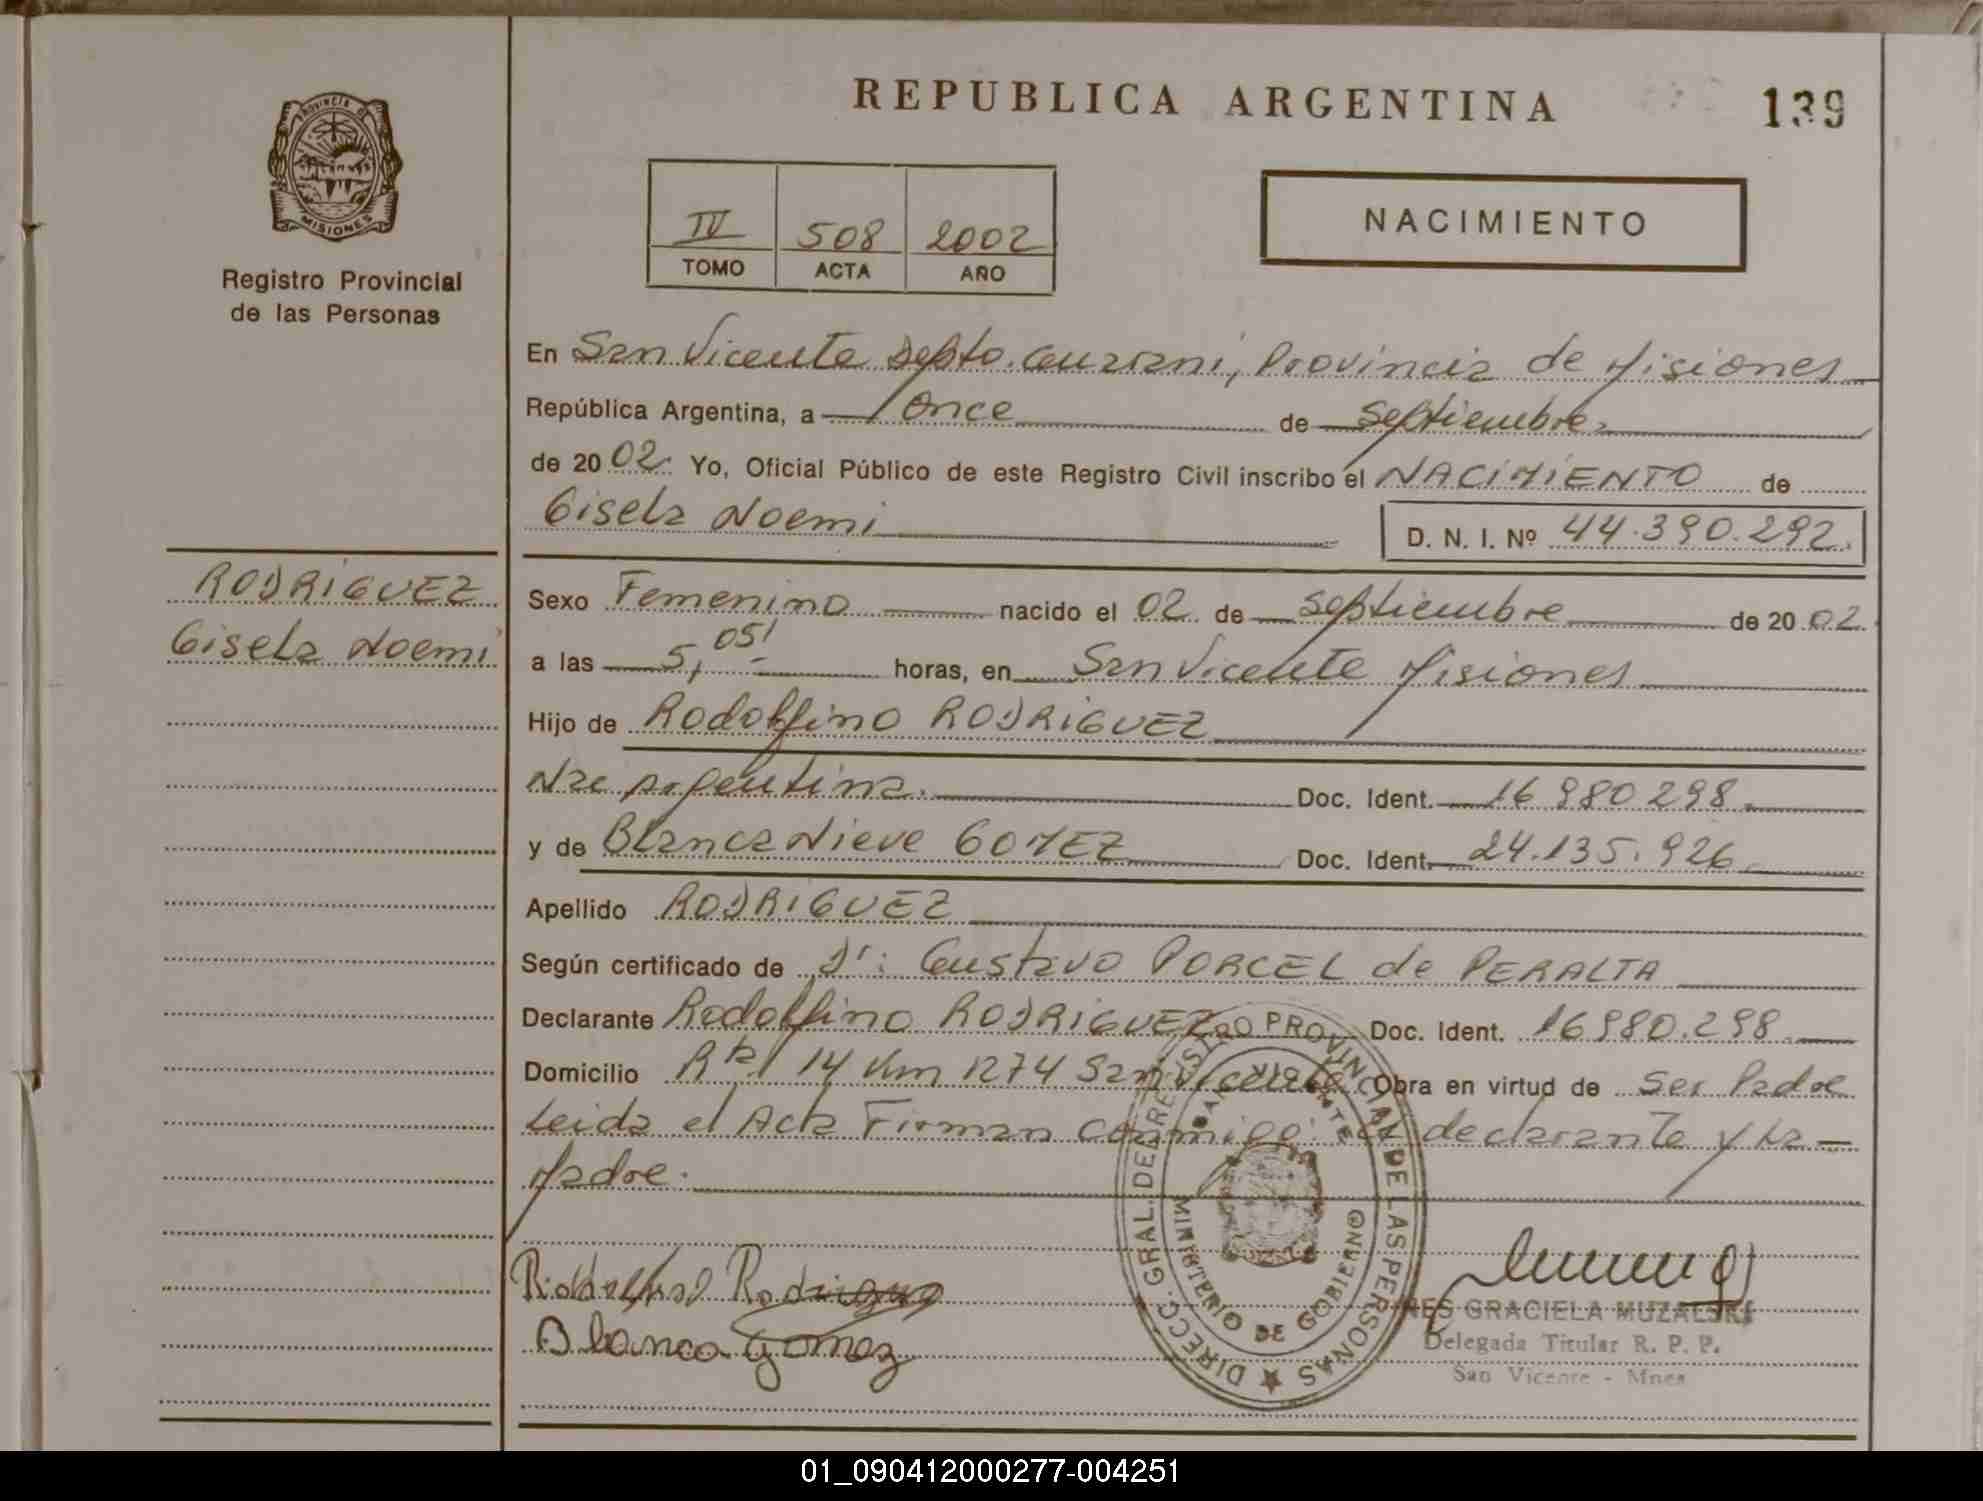 REPUBLICA ARGENTINA
139
PROVINCIA DE
MISIONES
Registro Provincial
de las Personas
IV 508 2002
TOMO ACTA AÑO
NACIMIENTO
En San Vicente Depto. Guarani, Provincia de Misiones
República Argentina, a Once de Septiembre
de 2002. Yo, Oficial Público de este Registro Civil inscribo el NACIMIENTO de
Gisela Noemi
D. N. I. Nº 44.390.292.
RODRIGUEZ
Gisela Noemi
Sexo Femenino nacido el 02 de Septiembre de 2002
a las 5,05' horas, en San Vicente Misiones
Hijo de Rodolfino RODRIGUEZ
Nac Argentina. Doc. Ident. 16 980 298
y de Blanca Nieve GOMEZ Doc. Ident. 24.135.926
Apellido RODRIGUEZ
Según certificado de Dr: Gustavo PORCEL de PERALTA
Declarante Rodolfino RODRIGUEZ Doc. Ident. 16980.298
Domicilio Rta 14 Km 1274 San Vicente Obra en virtud de Ser Padre
Leida el Acta Firman conmigo: el declarante y La
Madre.
DIRECC. GRAL. DEL REGISTRO PROVINCIAL DE LAS PERSONAS
SAN VICENTE
MINISTERIO DE GOBIERNO
Rodriguez
Blanca gomez
GRACIELA MUZALSKI
Delegada Titular R. P. P.
San Vicente - Mnes
01_090412000277-004251